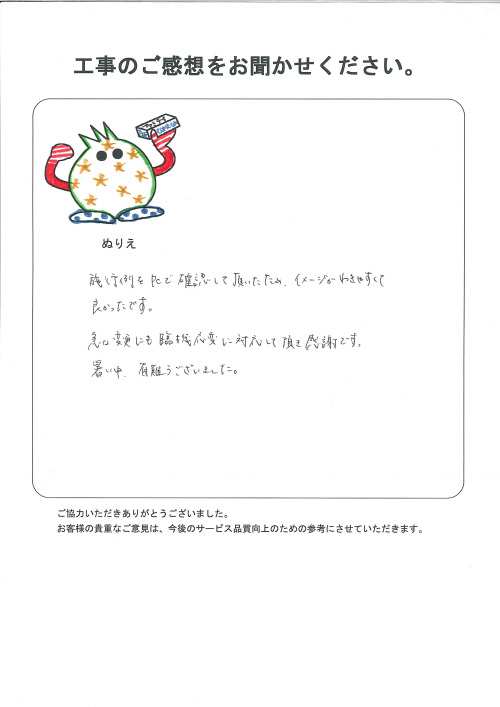 工事のご感想をお聞かせください。
ぬりえ
施行例をPCで確認して頂いたため、イメージがわきやすくて
良かったです。
急な変更にも臨機応変に対応して頂き感謝です。
暑い中、有難うございました。
ご協力いただきありがとうございました。
お客様の貴重なご意見は、今後のサービス品質向上のための参考にさせていただきます。